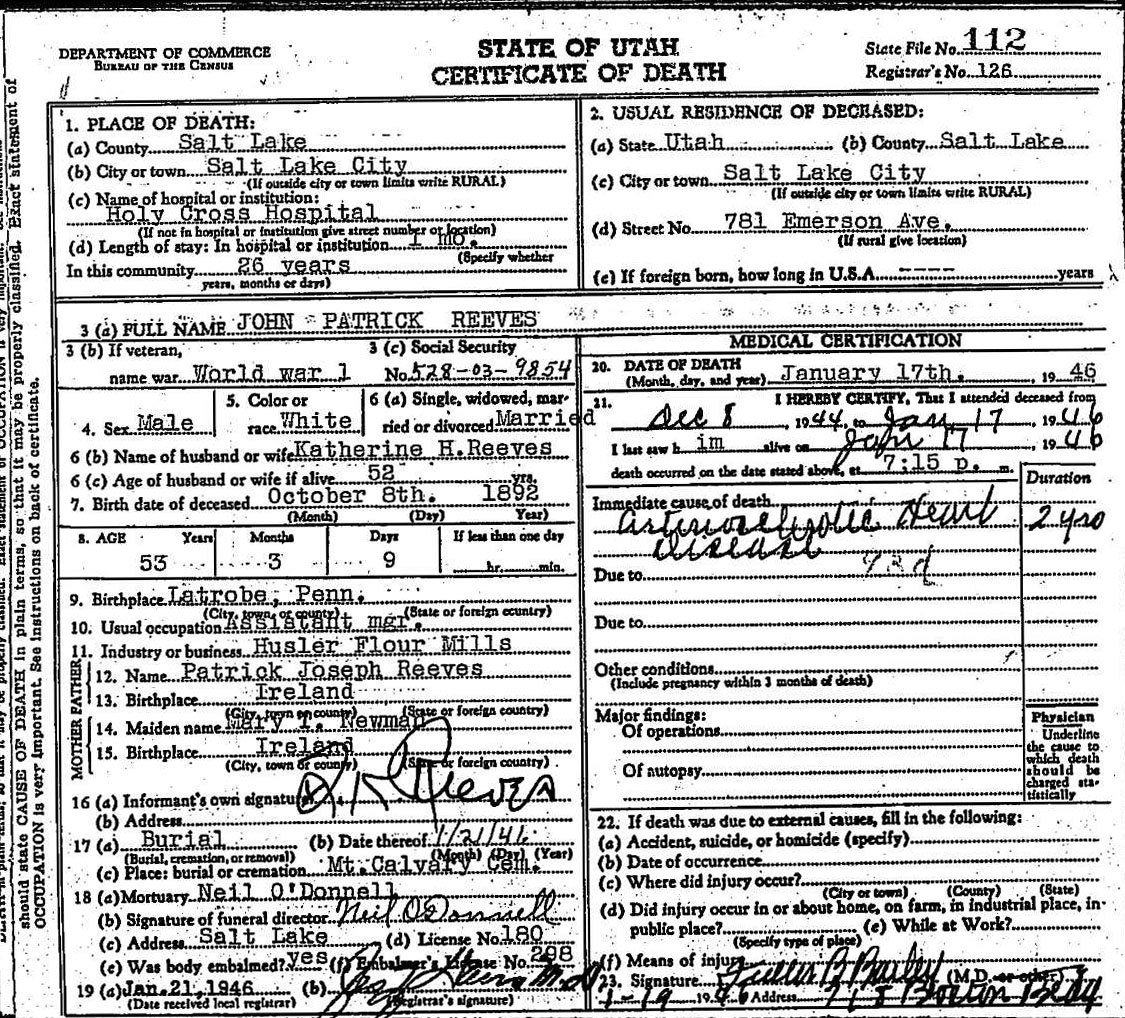 DEPARTMENT OF COMMERCE
BUREAU OF THE CENSUS
STATE OF UTAH
CERTIFICATE OF DEATH
State File No. 112
Registrar's No. 126
should state CAUSE OF DEATH in plain terms, so that it may be properly classified. Exact statement of
OCCUPATION is very important. See instructions on back of certificate.
1. PLACE OF DEATH:
(a) County Salt Lake
(b) City or town Salt Lake City
(If outside city or town limits write RURAL)
(c) Name of hospital or institution:
Holy Cross Hospital
(If not in hospital or institution give street number or location)
(d) Length of stay: In hospital or institution 1 mo.
(Specify whether
In this community 26 years
years, months or days)
2. USUAL RESIDENCE OF DECEASED:
(a) State Utah (b) County Salt Lake
(c) City or town Salt Lake City
(If outside city or town limits write RURAL)
(d) Street No. 781 Emerson Ave.
(If rural give location)
(e) If foreign born, how long in U.S.A. ---- years
3 (a) FULL NAME JOHN PATRICK REEVES
3 (b) If veteran,
name war World war 1
3 (c) Social Security
No. 528-03-9854
4. Sex Male
5. Color or
race White
6 (a) Single, widowed, mar-
ried or divorced Married
6 (b) Name of husband or wife Katherine H.Reeves
6 (c) Age of husband or wife if alive 52 yrs.
7. Birth date of deceased October 8th. 1892
(Month) (Day) Year)
8. AGE Years Months Days If less than one day
53 3 9 hr. min.
9. Birthplace Latrobe, Penn.
(City, town, or county) (State or foreign country)
10. Usual occupation Assistant mgr.
11. Industry or business Husler Flour Mills
FATHER
12. Name Patrick Joseph Reeves
13. Birthplace Ireland
(City, town or county) (State or foreign country)
MOTHER
14. Maiden name Mary T. Newman
15. Birthplace Ireland
(City, town or county) (State or foreign country)
16 (a) Informant's own signature Reeves
(b) Address
17 (a) Burial (b) Date thereof 1/21/46
(Burial, cremation, or removal) (Month) (Day) (Year)
(c) Place: burial or cremation Mt.Calvary Cem.
18 (a) Mortuary Neil O'Donnell
(b) Signature of funeral director Neil O'Donnell
(c) Address Salt Lake (d) License No. 180
(e) Was body embalmed? yes (f) Embalmer's License No. 298
19 (a) Jan.21,1946 (b)
(Date received local registrar) (Registrar's signature)
MEDICAL CERTIFICATION
20. DATE OF DEATH
(Month, day, and year) January 17th. 19 46
21. I HEREBY CERTIFY, That I attended deceased from
Dec 8, 19 44, to Jan 17, 19 46
I last saw h im alive on Jan 17 19 46
death occurred on the date stated above, at 7:15 p. m.
Duration
Immediate cause of death
Arteriosclerotic Heart 2 yrs
disease
Due to
Due to
Other conditions
(Include pregnancy within 3 months of death)
Major findings:
Of operations
Of autopsy
Physician
Underline
the cause to
which death
should be
charged sta-
tistically
22. If death was due to external causes, fill in the following:
(a) Accident, suicide, or homicide (specify)
(b) Date of occurrence
(c) Where did injury occur?
(City or town) (County) (State)
(d) Did injury occur in or about home, on farm, in industrial place, in-
public place? (e) While at Work?
(Specify type of place)
(f) Means of injury
23. Signature Bailey (M.D. or other)
1-19 19 46 Address 718 Boston Bldg